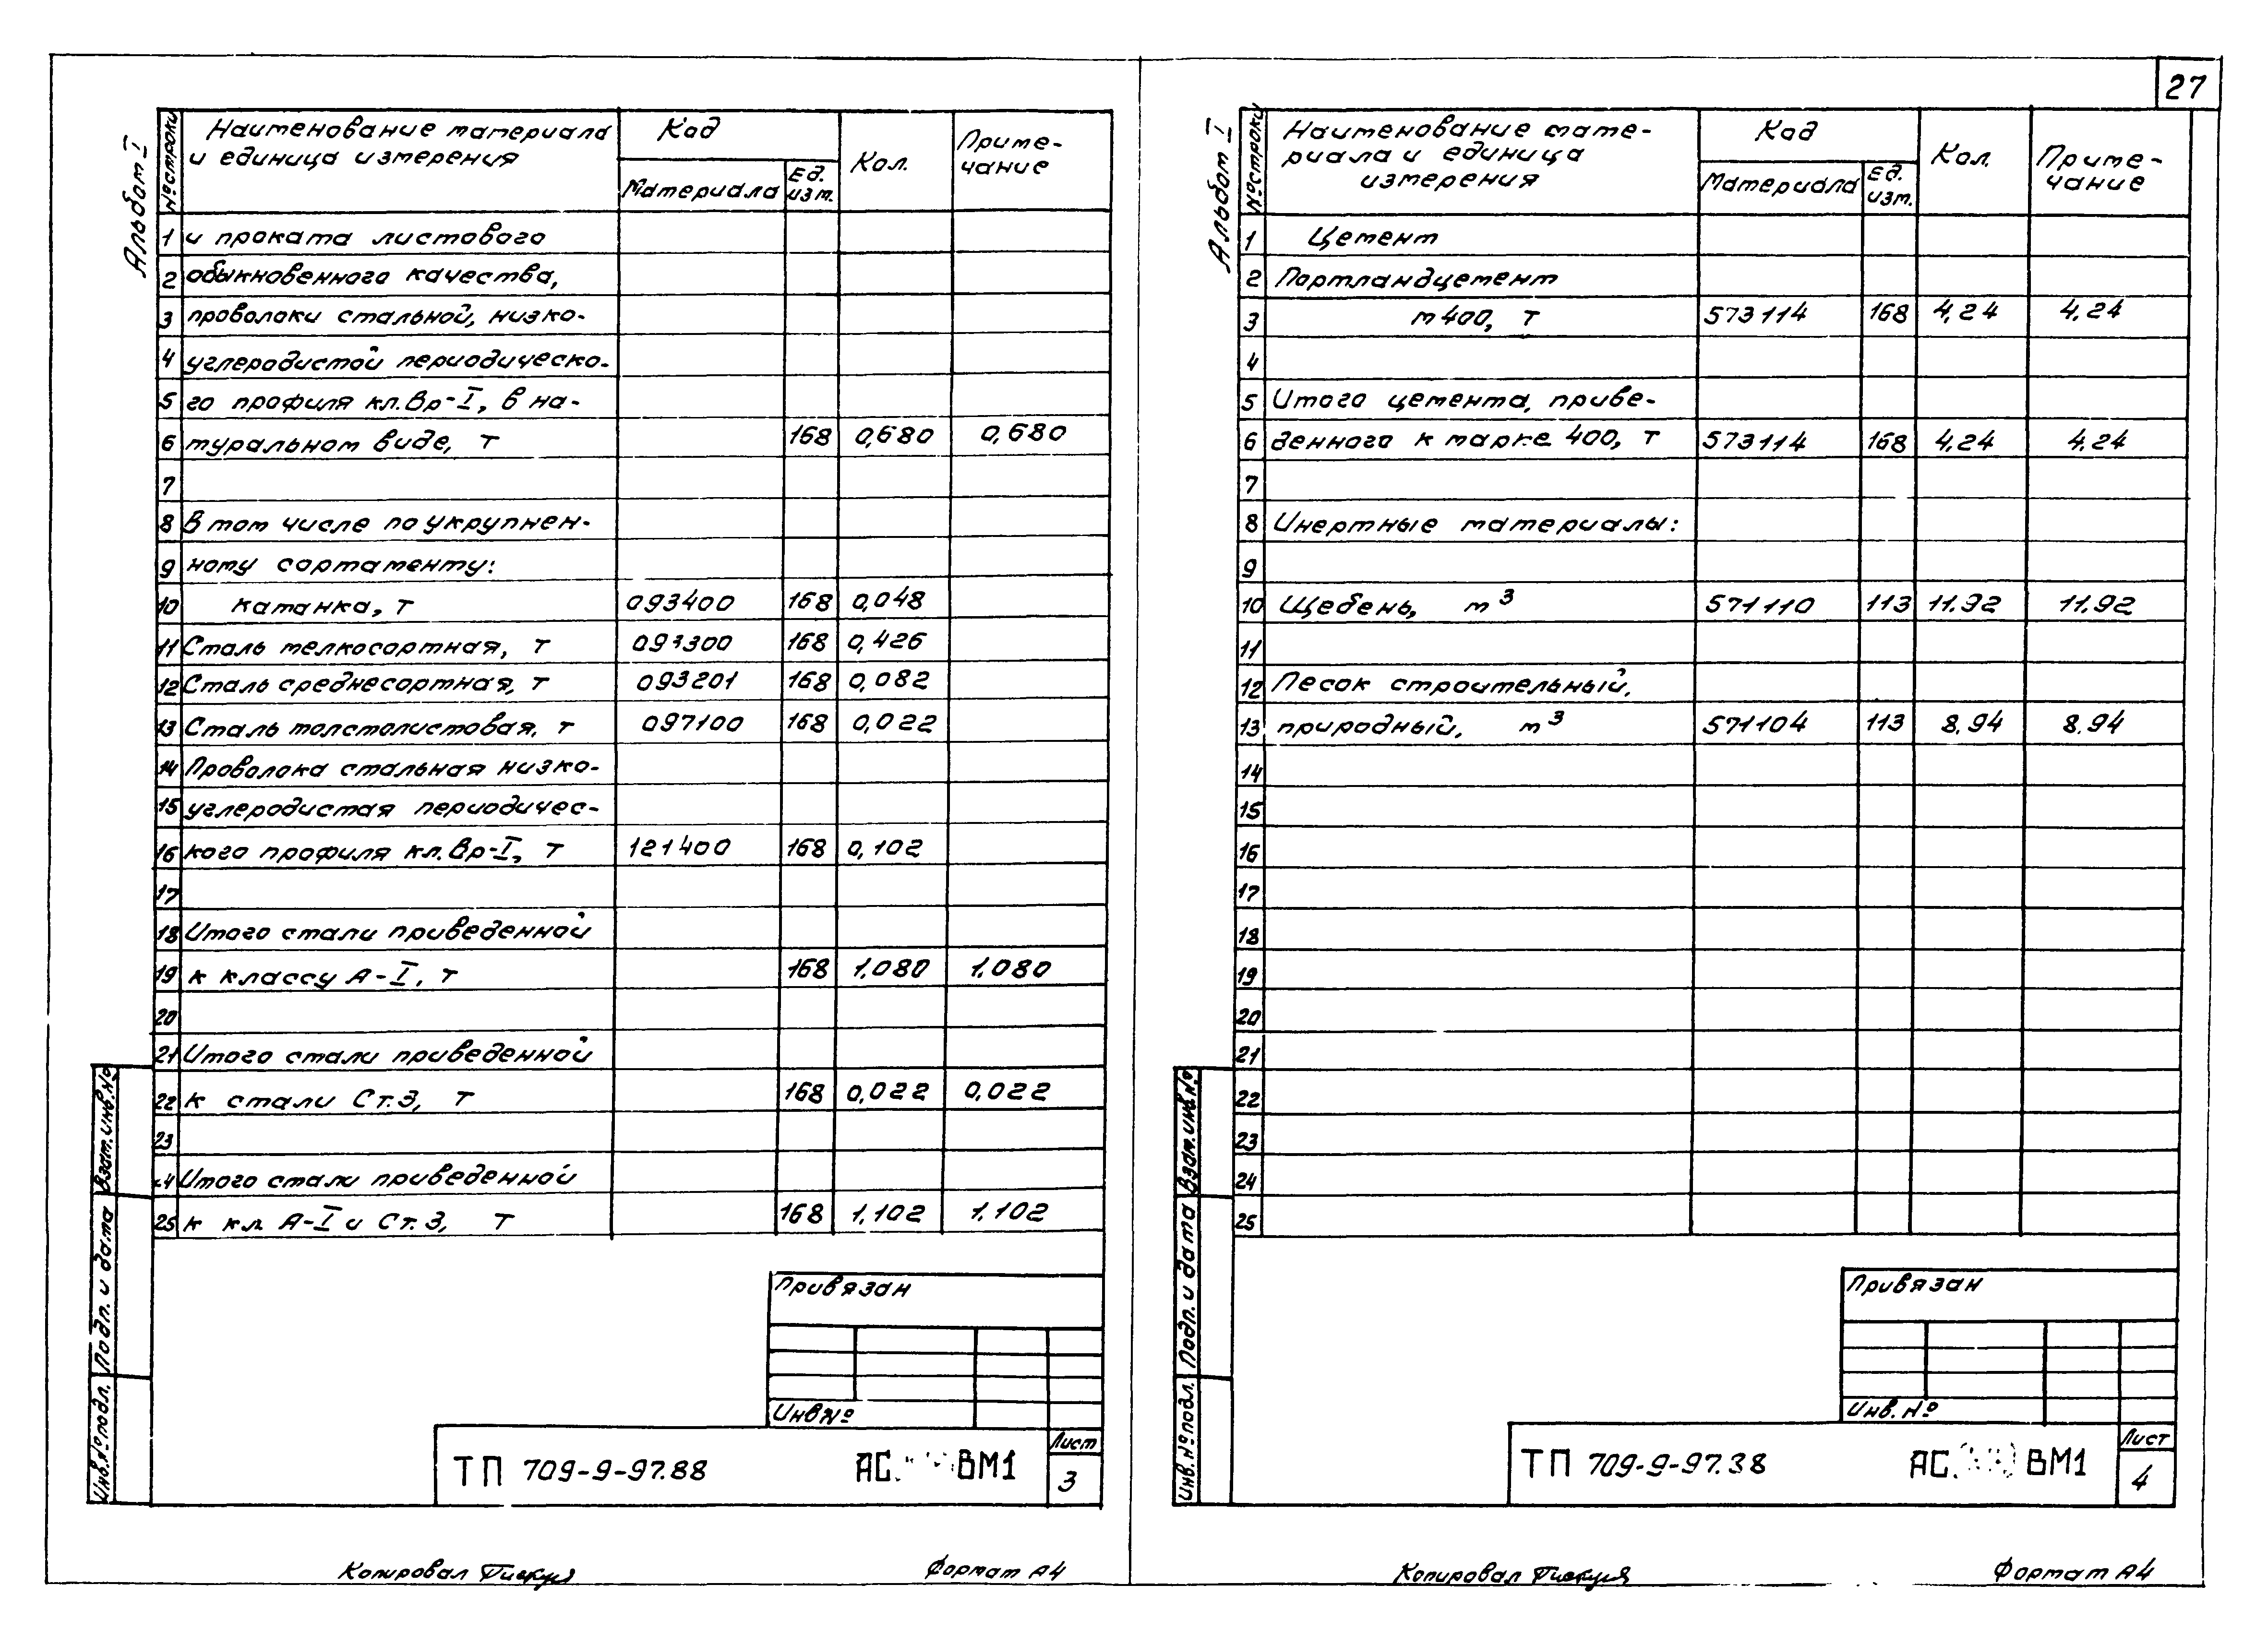 27
Альбом I
№ строки
Наименование материала
и единица измерения
Код
Материала
Ед.
изм.
Кол.
Приме-
чание
1 и проката листового
2 обыкновенного качества,
3 проволоки стальной, низко-
4 углеродистой периодическо-
5 го профиля кл. Вр-I, в на-
6 туральном виде, т 168 0,680 0,680
7
8 В том числе по укрупнен-
9 ному сортаменту:
10 катанка, т 093400 168 0,048
11 Сталь мелкосортная, т 093300 168 0,426
12 Сталь среднесортная, т 093201 168 0,082
13 Сталь толстолистовая, т 097100 168 0,022
14 Проволока стальная низко-
15 углеродистая периодичес-
16 кого профиля кл. Вр-I, т 121400 168 0,102
17
18 Итого стали приведенной
19 к классу А-I, т 168 1.080 1.080
20
21 Итого стали приведенной
22 к стали Ст.3, т 168 0,022 0,022
23
24 Итого стали приведенной
25 к кл. А-I и Ст.3, т 168 1,102 1,102
Взам. инв. №
Подп. и дата
Инв. № подл.
Привязан
Инв №
ТП 709-9-97.88 АС ВМ1
Лист
3
Копировал
Формат А4
Альбом I
№ строки
Наименование мате-
риала и единица
измерения
Код
Материала
Ед.
изм.
Кол.
Приме-
чание
1 Цемент
2 Портландцемент
3 м400, т 573114 168 4,24 4,24
4
5 Итого цемента, приве-
6 денного к марке 400, т 573114 168 4,24 4,24
7
8 Инертные материалы:
9
10 Щебень, м³ 571110 113 11.92 11.92
11
12 Песок строительный,
13 природный, м³ 571104 113 8.94 8.94
14
15
16
17
18
19
20
21
22
23
24
25
Взам. инв. №
Подп. и дата
Инв. № подл.
Привязан
Инв. №
ТП 709-9-97.38 АС ВМ1
Лист
4
Копировал
Формат А4